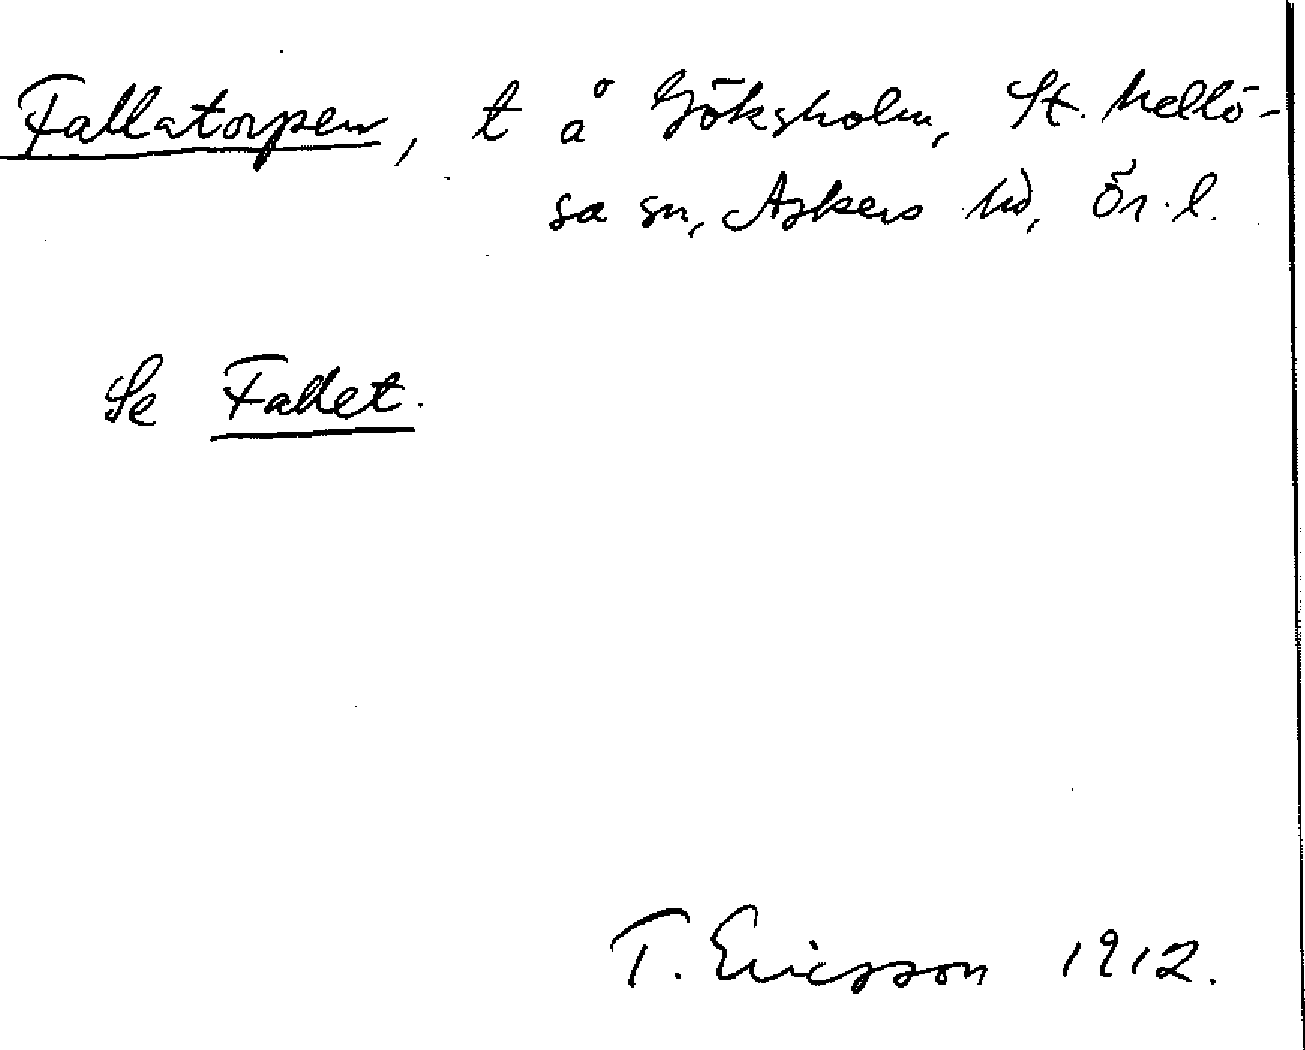 Fallatorpen, t å Göksholm, St. Mellö-
sa sn, Askers hd, Ör. l.
Se Fallet.
T. Ericsson 1912.